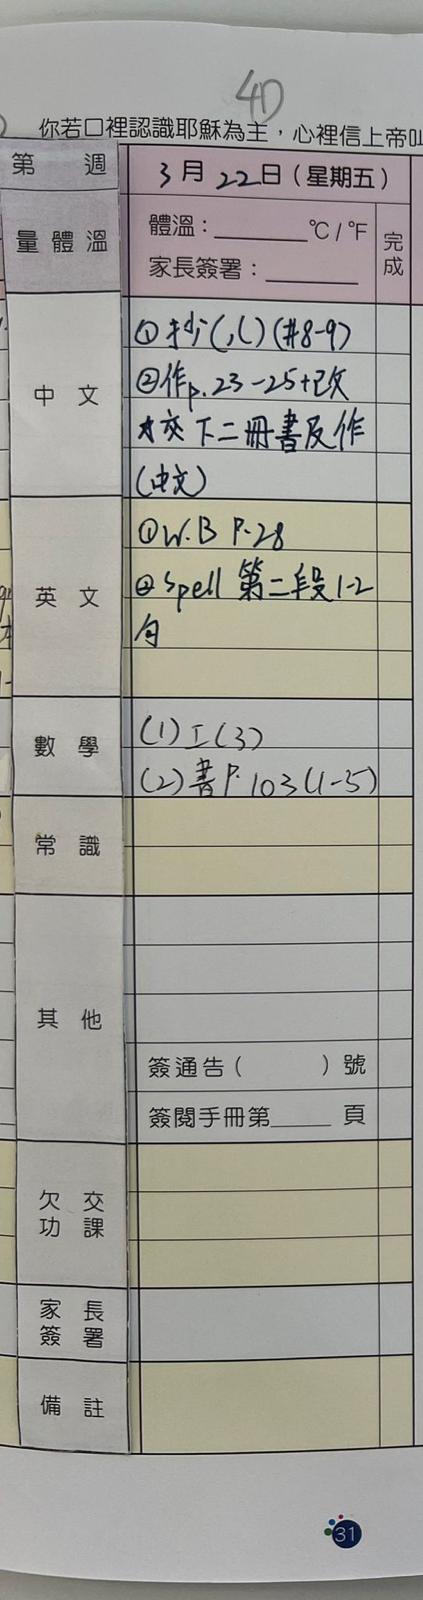 4D
你若口裡認識耶穌為主，心裡信上帝叫
第 週
3月22日(星期五)
量體溫
體溫：______℃/℉
家長簽署：______
完成
中文
①抄(小心)(#8-9)
②作p.23-25+改
*交下二冊書及作
(中文)
英文
①W.B P.28
②Spell 第二段1-2
句
數學
(1)工(3)
(2)書P.103(1-5)
常識
其他
簽通告( )號
簽閱手冊第____頁
欠交
功課
家長
簽署
備註
31